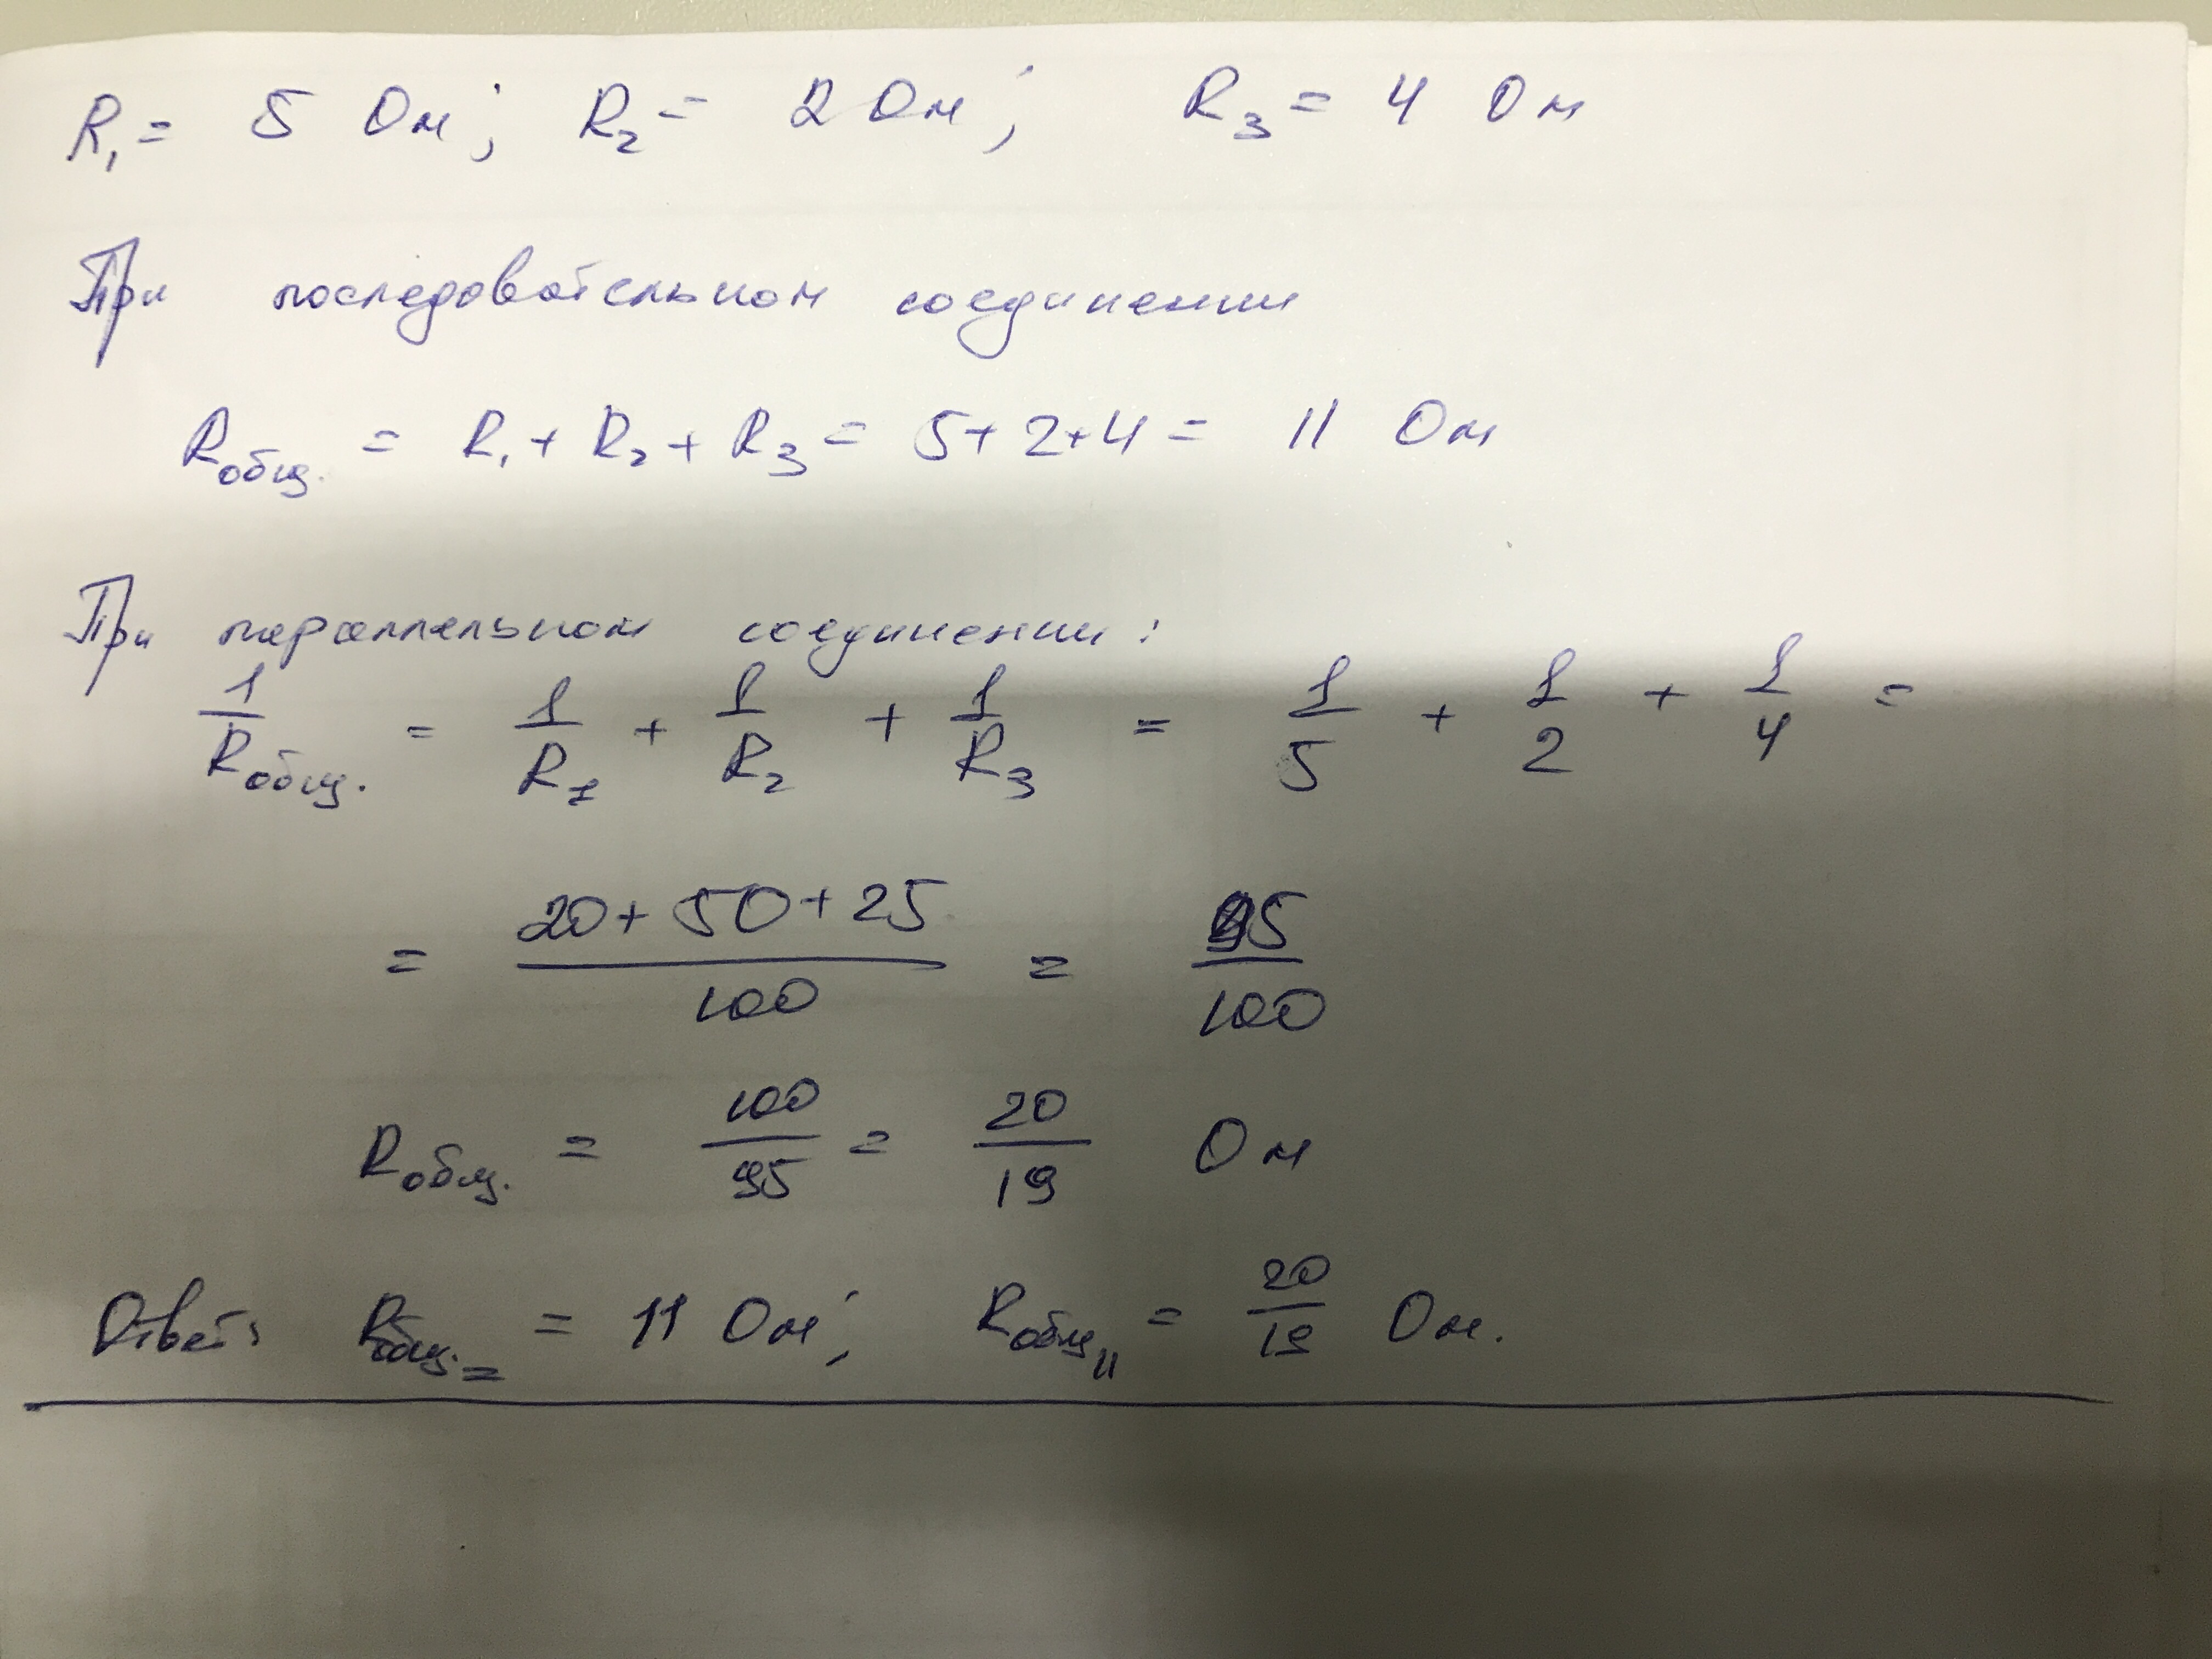 R₁ = 5 Ом; R₂ = 2 Ом; R₃ = 4 Ом
При последовательном соединении
Rобщ. = R₁ + R₂ + R₃ = 5+2+4 = 11 Ом
При параллельном соединении:
1/Rобщ. = 1/R₁ + 1/R₂ + 1/R₃ = 1/5 + 1/2 + 1/4 =
= (20+50+25)/100 = 95/100
Rобщ. = 100/95 = 20/19 Ом
Ответ: Rобщ.= = 11 Ом; Rобщ|| = 20/19 Ом.